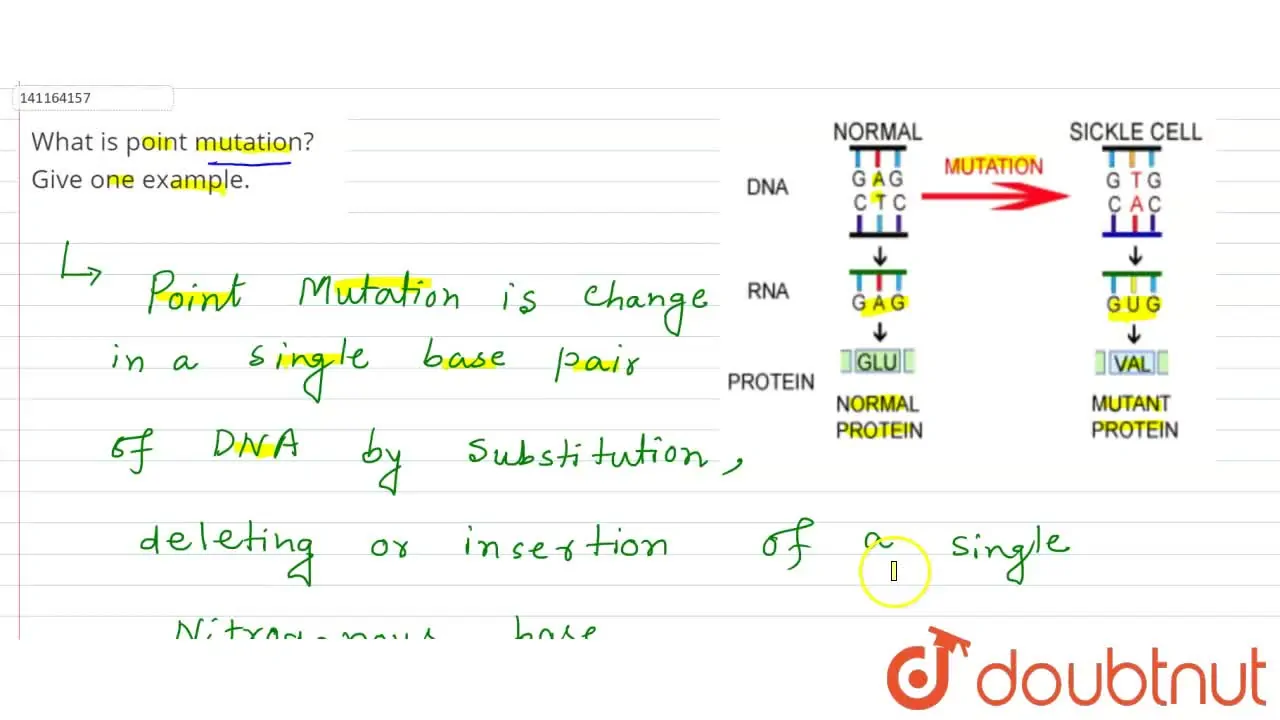 141164157
What is point mutation?
Give one example.
NORMAL
SICKLE CELL
MUTATION
DNA
G A G
C T C
G T G
C A C
RNA
G A G
G U G
PROTEIN
GLU
VAL
NORMAL
PROTEIN
MUTANT
PROTEIN
Point Mutation is change
in a single base pair
of DNA by Substitution,
deleting or insertion of a single
Nitrogenous base
doubtnut